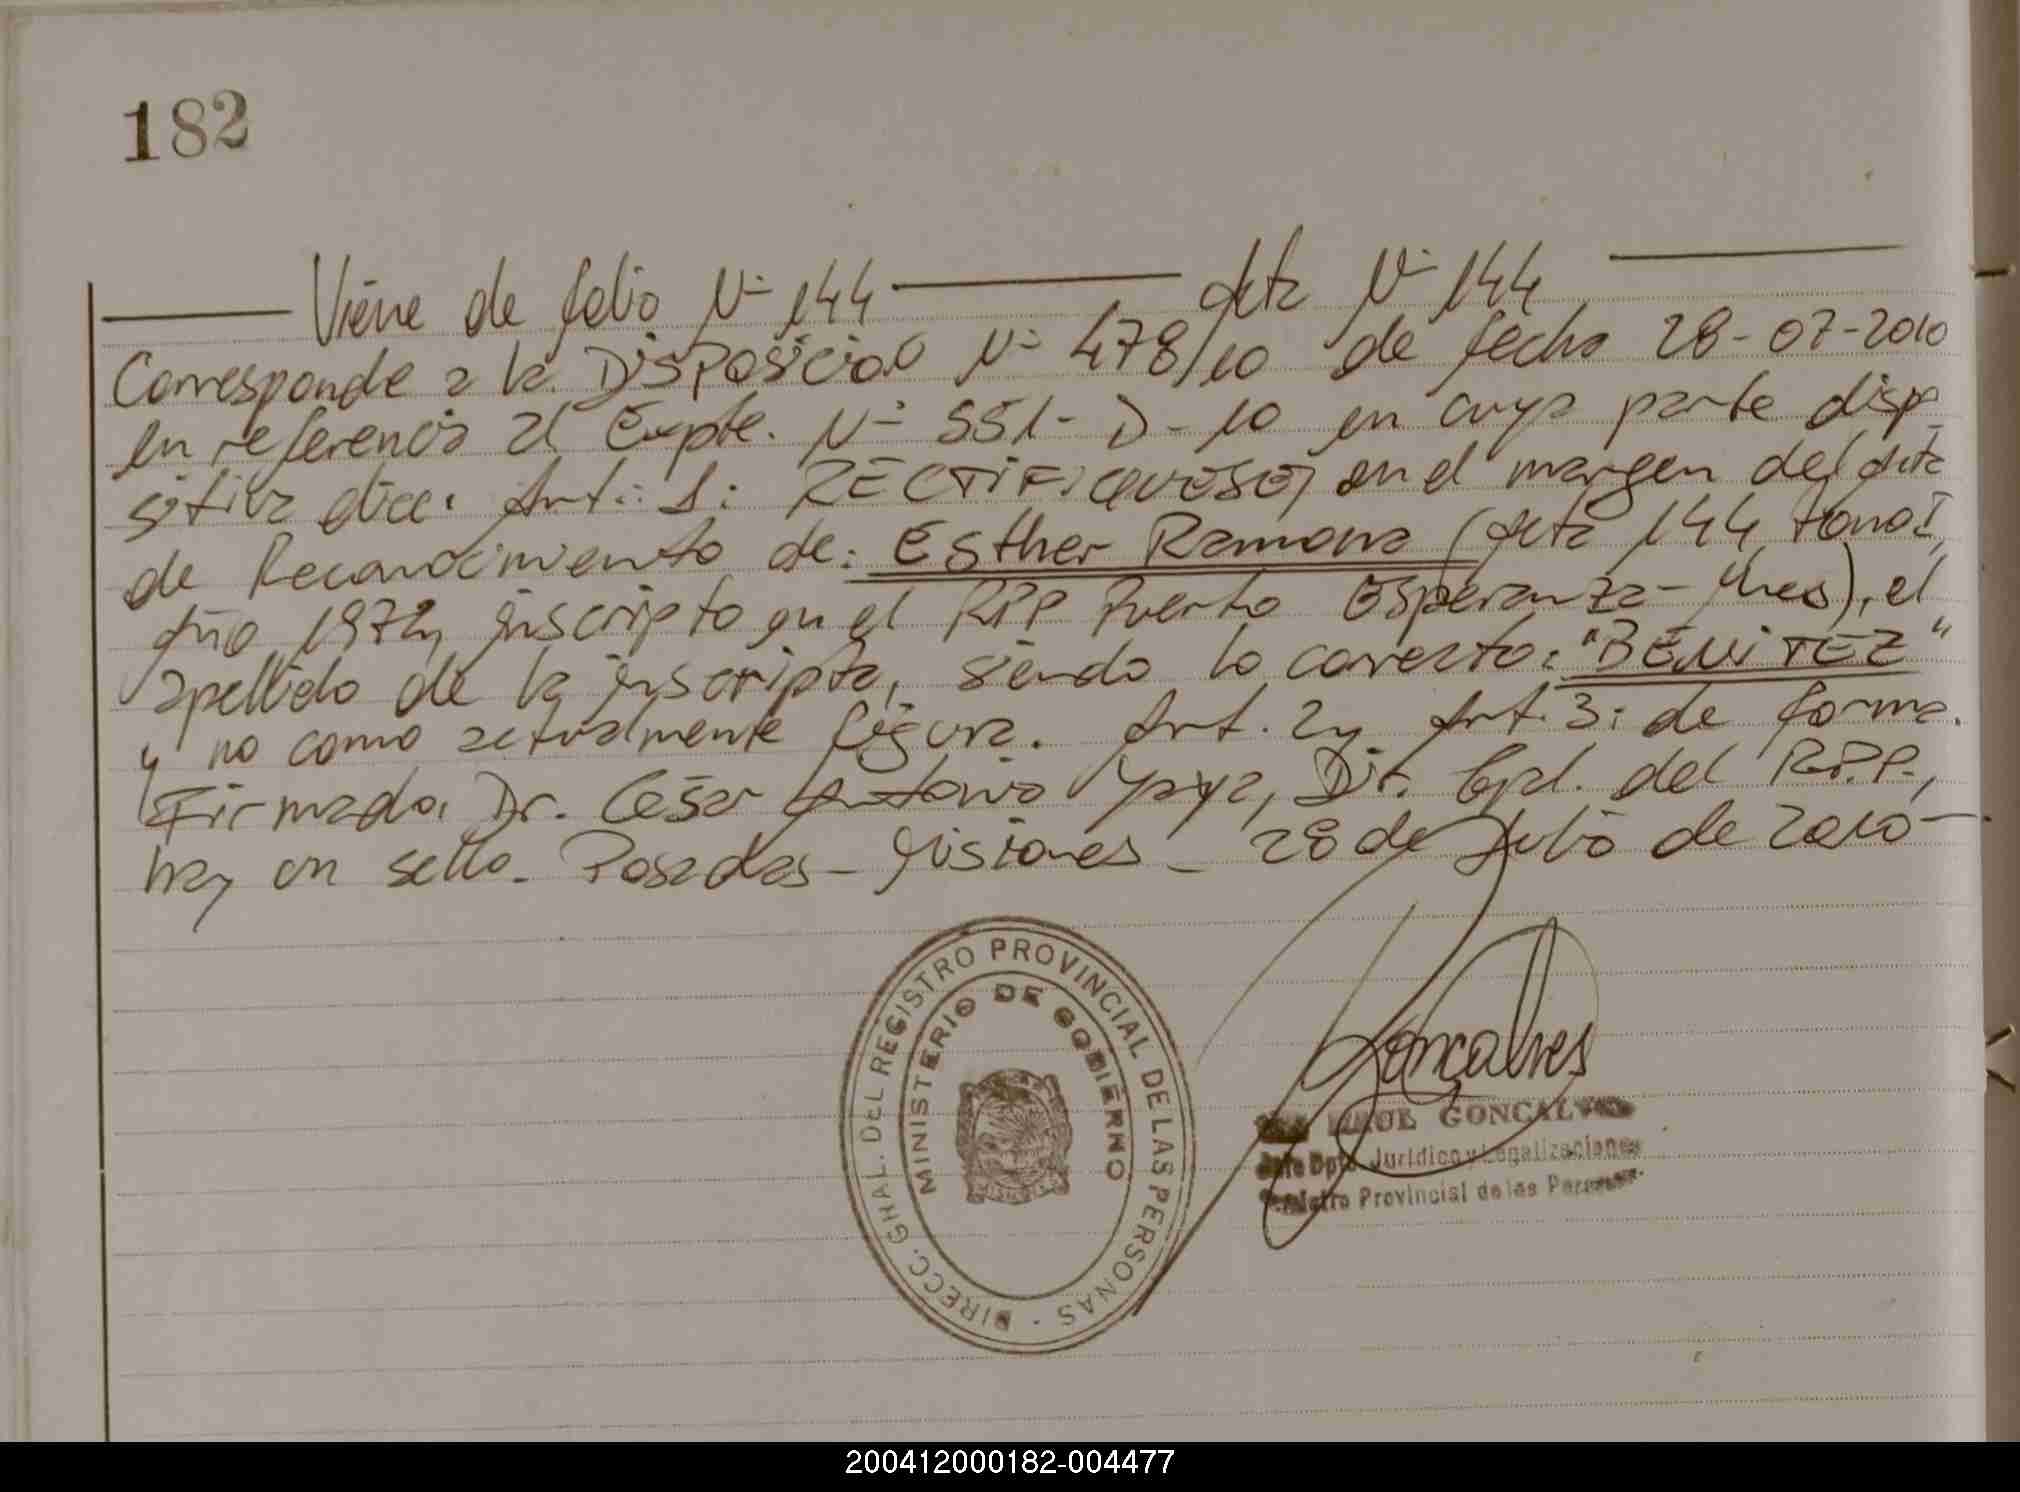 182
Viene de folio Nº 144 — Acta Nº 144
Corresponde a la DISPOSICION Nº 478/10 de fecha 28-07-2010
en referencia al Expte. Nº 551-D-10 en cuya parte dispo
sitiva dice: Art.: 1: RECTIFIQUESE, en el margen del Acta
de Reconocimiento de: Esther Ramona (Acta 144 tomo I,
Año 1972, inscripto en el RPP Puerto Esperanza - Mnes), el
apellido de la inscripta, siendo lo correcto: "BENITEZ"
y no como actualmente figura. Art. 2 y Art. 3: de forma.
Firmado. Dr. César Antonio Yaya, Dir. Gral. del R.P.P.,
hay un sello. Posadas - Misiones - 28 de Julio de 2010 -
DIRECC. GRAL. DEL REGISTRO PROVINCIAL DE LAS PERSONAS
MINISTERIO DE GOBIERNO
MISIONES
Gonçalves
GONCALVES
Jefe Dpto. Jurídico y Legalizaciones
Registro Provincial de las Personas
200412000182-004477